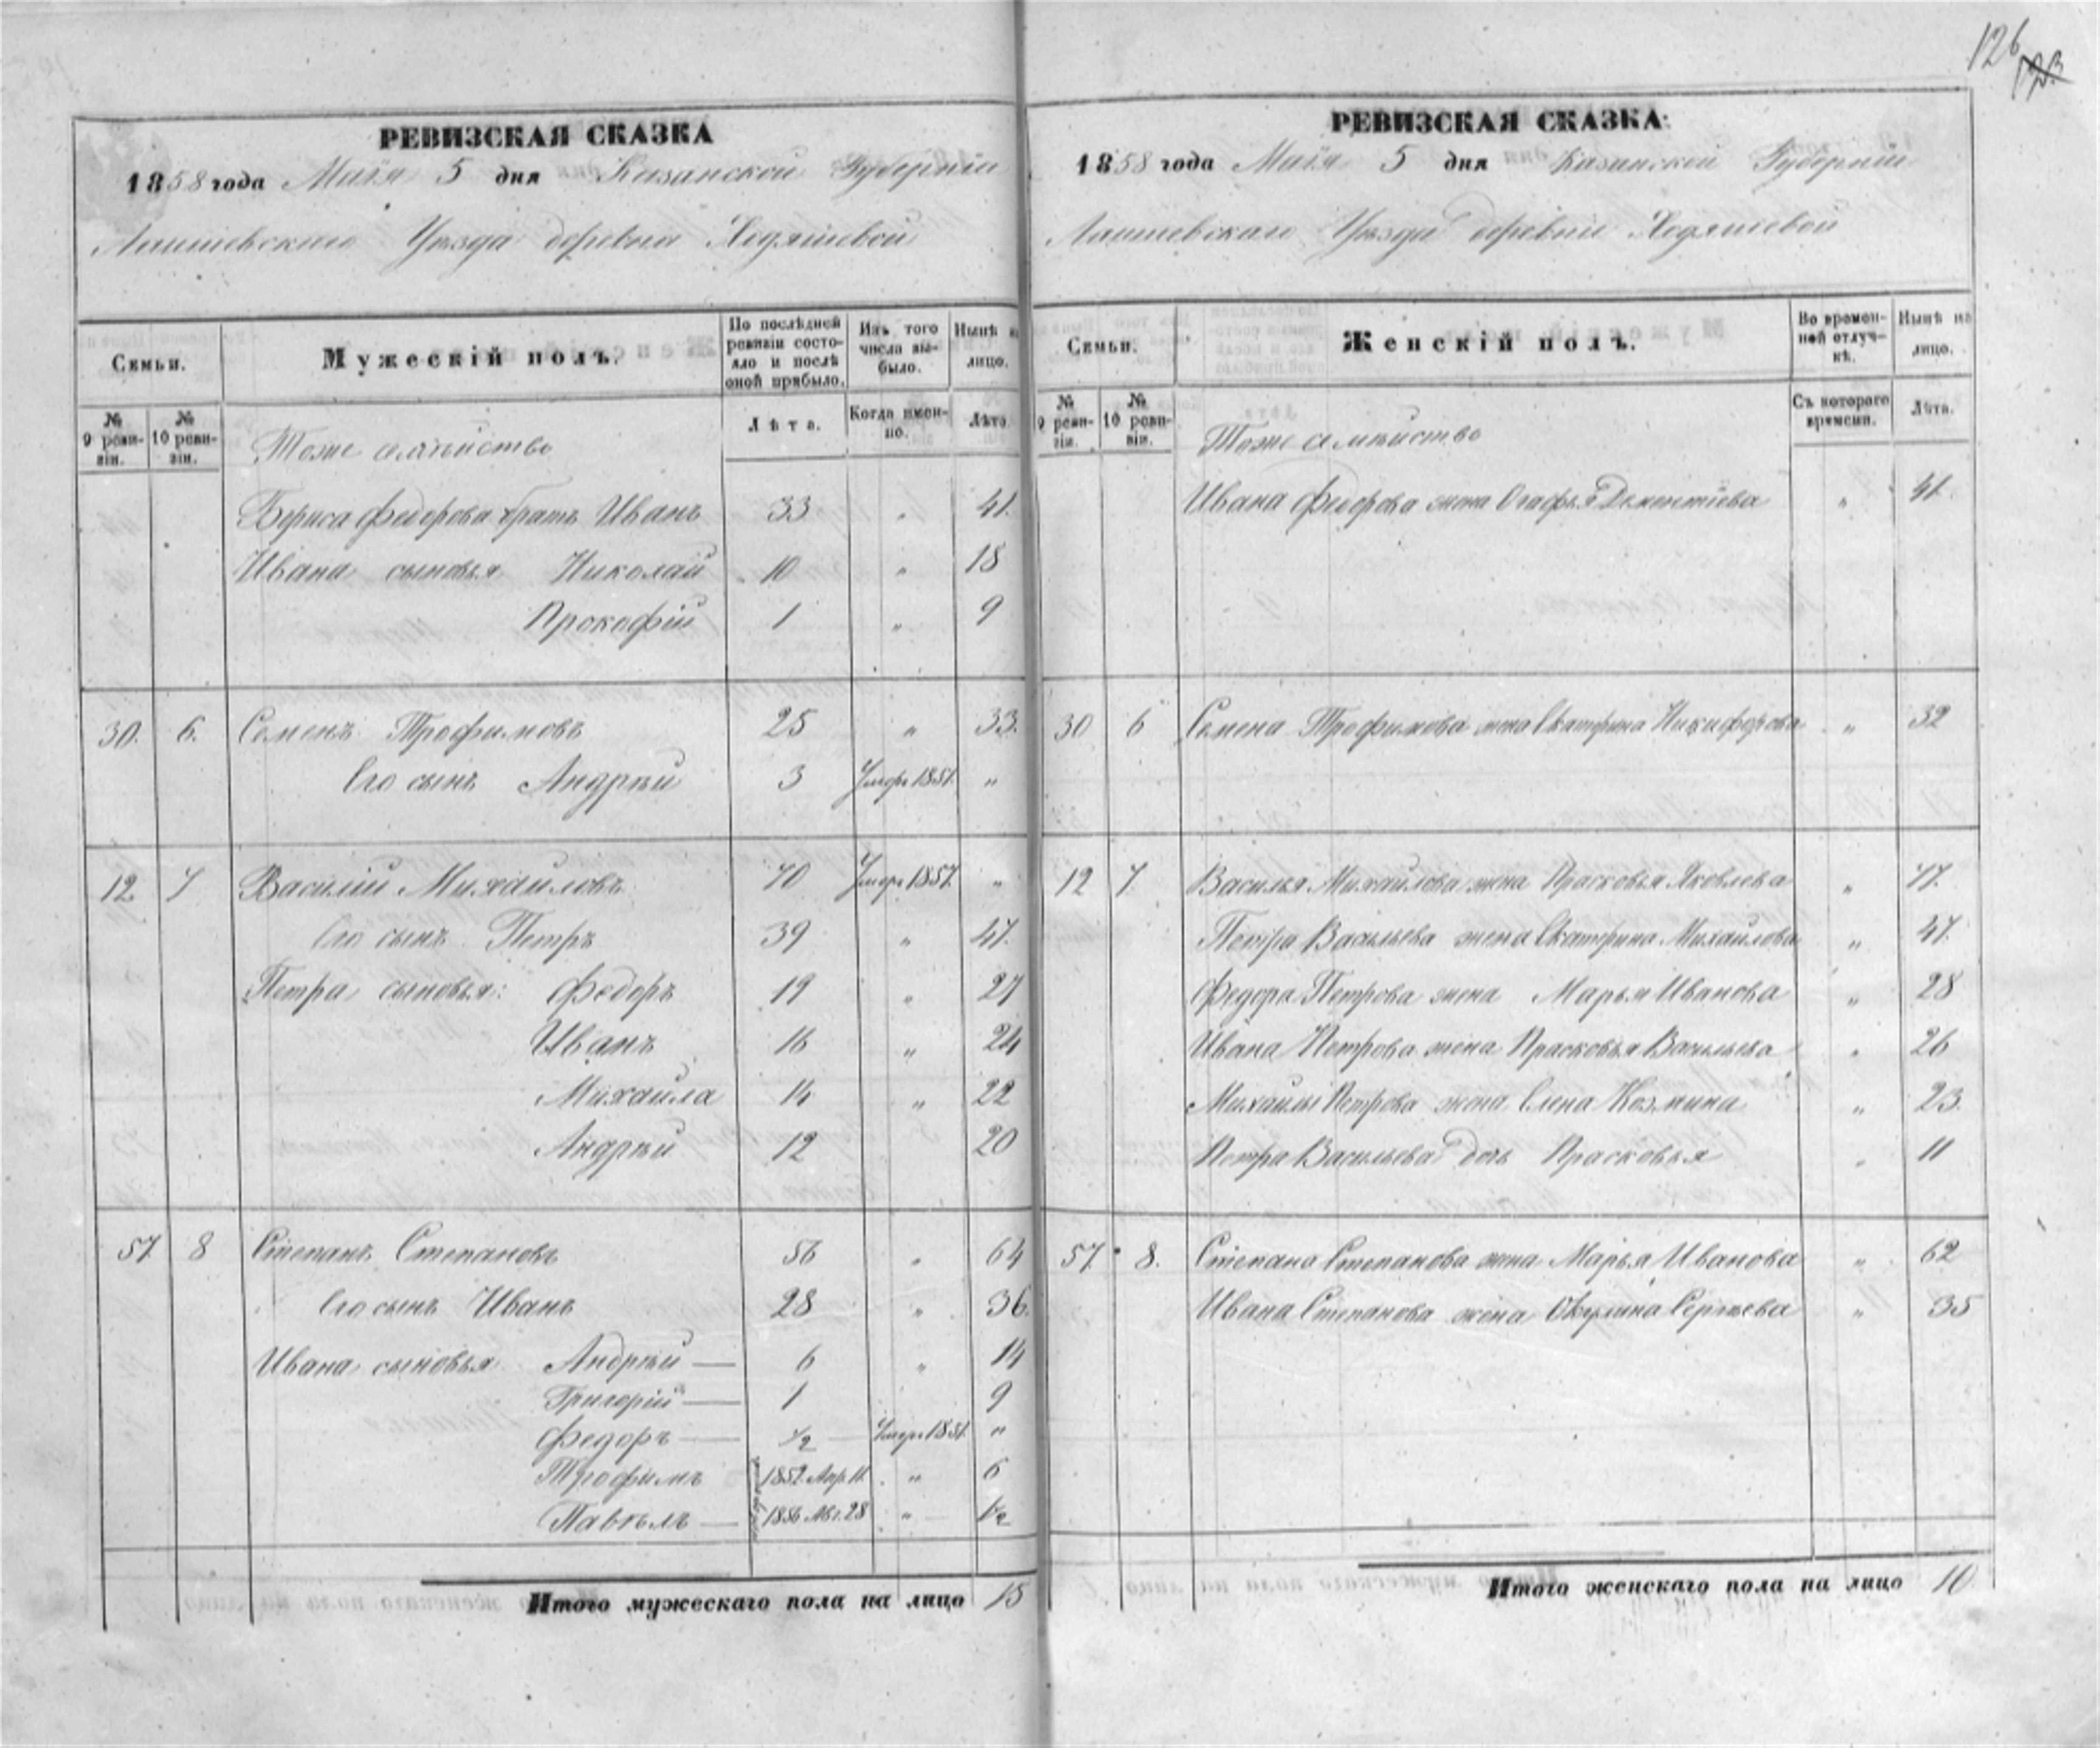 126
123
РЕВИЗСКАЯ СКАЗКА
1858 года Маія 5 дня Казанской Губерніи
Лаишевскаго Уѣзда деревни Ходяшевой
Семьи.
Мужескій полъ.
По послѣдней ревизіи состояло и послѣ оной прибыло.
Изъ того числа выбыло.
Нынѣ на лицо.
№ 9 ревизіи.
№ 10 ревизіи.
Лѣта.
Когда именно.
Лѣта.
Тоже семѣйство
Бориса Федорова братъ Иванъ 33 " 41.
Ивана сыновья Николай 10 " 18
Прокофій 1 " 9
30. 6. Семенъ Трофимовъ 25 " 33.
Его сынъ Андрѣй 3 Умеръ 1851. "
12 7 Василій Михайловъ 70 Умеръ 1857. "
Его сынъ Петръ 39 " 47.
Петра сыновья: Федоръ 19 " 27
Иванъ 16 " 24
Михаила 14 " 22
Андрѣй 12 20
57 8 Степанъ Степановъ 56 " 64
Его сынъ Иванъ 28 " 36.
Ивана сыновья Андрѣй — 6 " 14
Григорій — 1 9
Федоръ — 1/2 Умеръ 1851. "
Трофимъ 1852. Апр. 11. " 6
Павѣлъ — 1856 Авг. 28 " 1 1/2
Итого мужескаго пола на лицо 15
РЕВИЗСКАЯ СКАЗКА:
1858 года Маія 5 дня Казанской Губерніи
Лаишевскаго Уѣзда деревни Ходяшевой
Семьи.
Женскій полъ.
Во временной отлучкѣ.
Нынѣ на лицо.
№ 9 ревизіи.
№ 10 ревизіи.
Съ котораго времени.
Лѣта.
Тоже семѣйство
Ивана Федорова жена Огафья Дементіева " 41.
30 6 Семена Трофимова жена Екатѣрина Никифорова " 32
12 7. Василья Михайлова жена Прасковья Яковлева " 77.
Петра Васильева жена Екатѣрина Михайлова " 47.
Федора Петрова жена Марья Иванова " 28
Ивана Петрова жена Прасковья Васильева " 26
Михайлы Петрова жена Елена Козмина " 23.
Петра Васильева дочь Прасковья " 11
57. 8. Степана Степанова жена Марья Иванова " 62
Ивана Степанова жена Окулина Сергѣева " 35
Итого женскаго пола на лицо 10